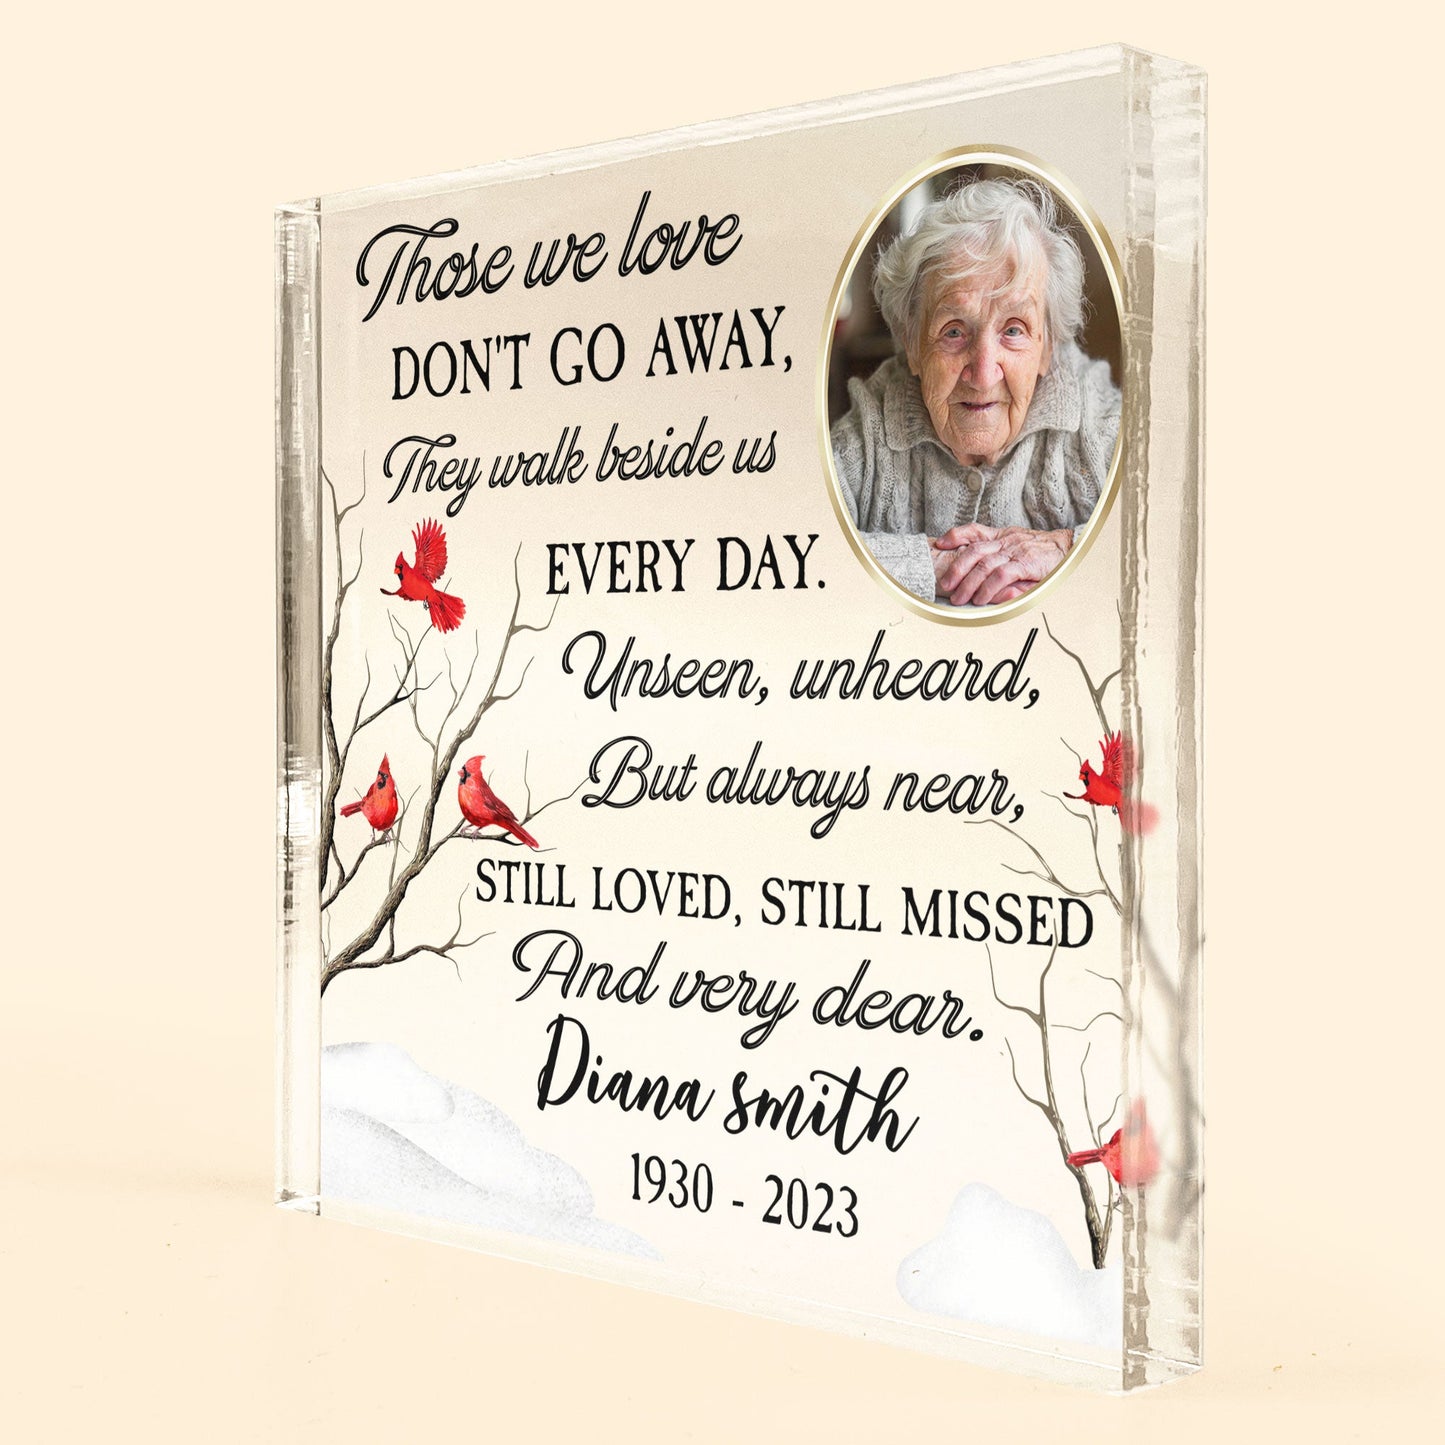 Those we love
DON'T GO AWAY,
They walk beside us
EVERY DAY.
Unseen, unheard,
But always near,
STILL LOVED, STILL MISSED
And very dear.
Diana Smith
1930 - 2023